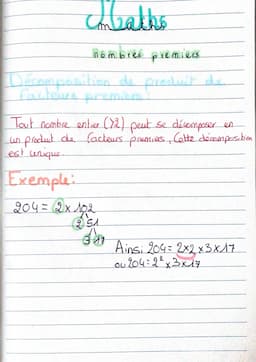 Maths
nombres premiers
Décomposition de produit de
facteurs premiers:
Tout nombre entier (≥2) peut se décomposer en
un produit de facteurs premiers, Cette décomposition
est unique.
Exemple:
204 = 2 x 102
2 51
3 17
Ainsi 204 = 2x2 x 3 x 17
ou 204 = 2² x 3 x 17